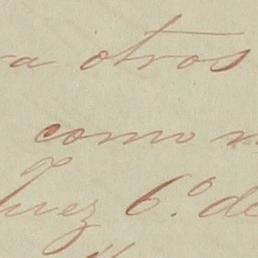 otros
como
Juez 6.º de